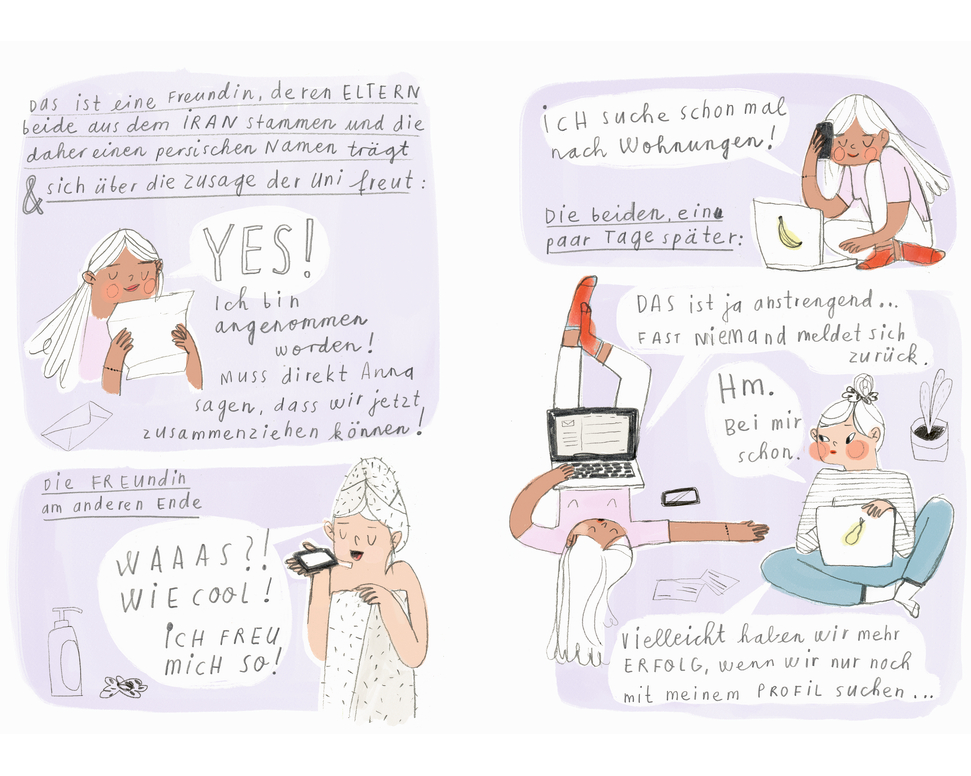 Das ist eine Freundin, deren ELTERN
beide aus dem IRAN stammen und die
daher einen persischen Namen trägt
& sich über die Zusage der Uni freut:
YES!
Ich bin
angenommen
worden!
Muss direkt Anna
sagen, dass wir jetzt
zusammenziehen können!
Die FREUndin
am anderen Ende
WAAAS?!
WiE COOL!
ICH FREU
MICH SO!
ICH suche schon mal
nach Wohnungen!
Die beiden, ein
paar Tage später:
DAS ist ja anstrengend...
FAST NIEMAND meldet sich
zurück.
Hm.
Bei mir
schon.
Vielleicht haben wir mehr
ERFOLG, wenn wir nur noch
mit meinem PROFIL suchen...